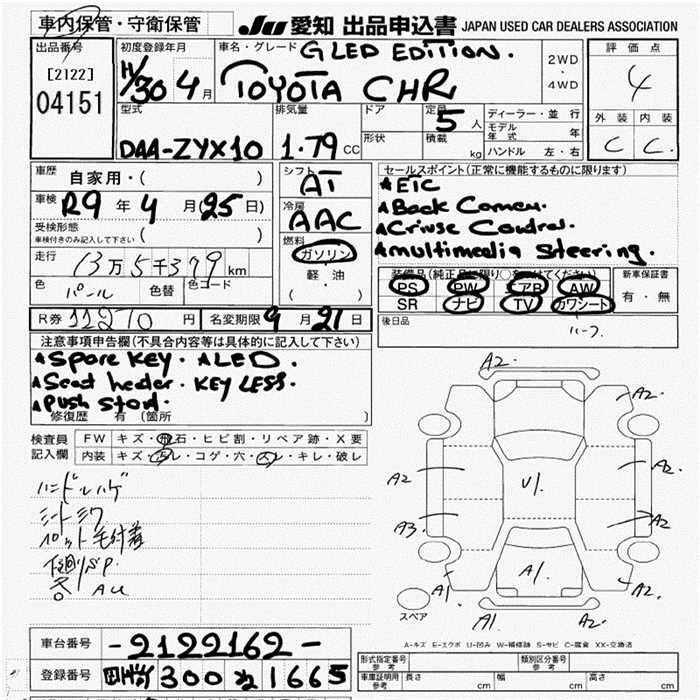 車内保管・守衛保管
JU 愛知 出品申込書 JAPAN USED CAR DEALERS ASSOCIATION
出品番号
[2122]
04151
初度登録年月
H/30 4 月
車名・グレード G LED EDITION.
TOYOTA CHR
2WD
・
4WD
評価点
4
外装 内装
C C.
型式
DAA-ZYX10
排気量
1.79 CC
ドア
形状
定員 5 人
積載 kg
ディーラー・並行
モデル年式 年
ハンドル 左・右
車歴 自家用・( )
車検 R9 年 4 月 25 日)
受検形態
車検付きのみ記入して下さい ( )
走行 13万5千379 km
色 パール 色替 色コード
シフト AT
冷房 AAC
燃料 ガソリン
軽・油
( ・ )
セールスポイント(正常に機能するものに限ります)
★ETC
★Back Camera.
★Criuse Control.
★multimedia steering.
装備品(純正品に限り○をつけてください)
PS PW エアB AW
SR ナビ TV カワシート
新車保証書
有・無
ハーフ
後日品
R券 11270 円 名変期限 9 月 21 日
注意事項申告欄(不具合内容等は具体的に記入して下さい)
★Spare Key. ★LED.
★Seat heder. KEY LESS.
★Push Start.
修復歴 有 〔箇所 〕
検査員記入欄
FW キズ・飛石・ヒビ割・リペア跡・X要
内装 キズ・汚レ・コゲ・穴・スレ・キレ・破レ
ハンドルハゲ
シートシワ
ペット毛付着
A2
A2.
A2 A2.
U1.
A3. A2
A1.
A1 A2.
スペア
A1 A2.
A-キズ E-エクボ U-凹み W-補修跡 S-サビ C-腐食 XX-交換済
車台番号 -2122162-
登録番号 300 ね 1665
形式指定番号 参考
類別区分番号 参考
車庫証明用 参考 長さ cm 幅 cm 高さ cm